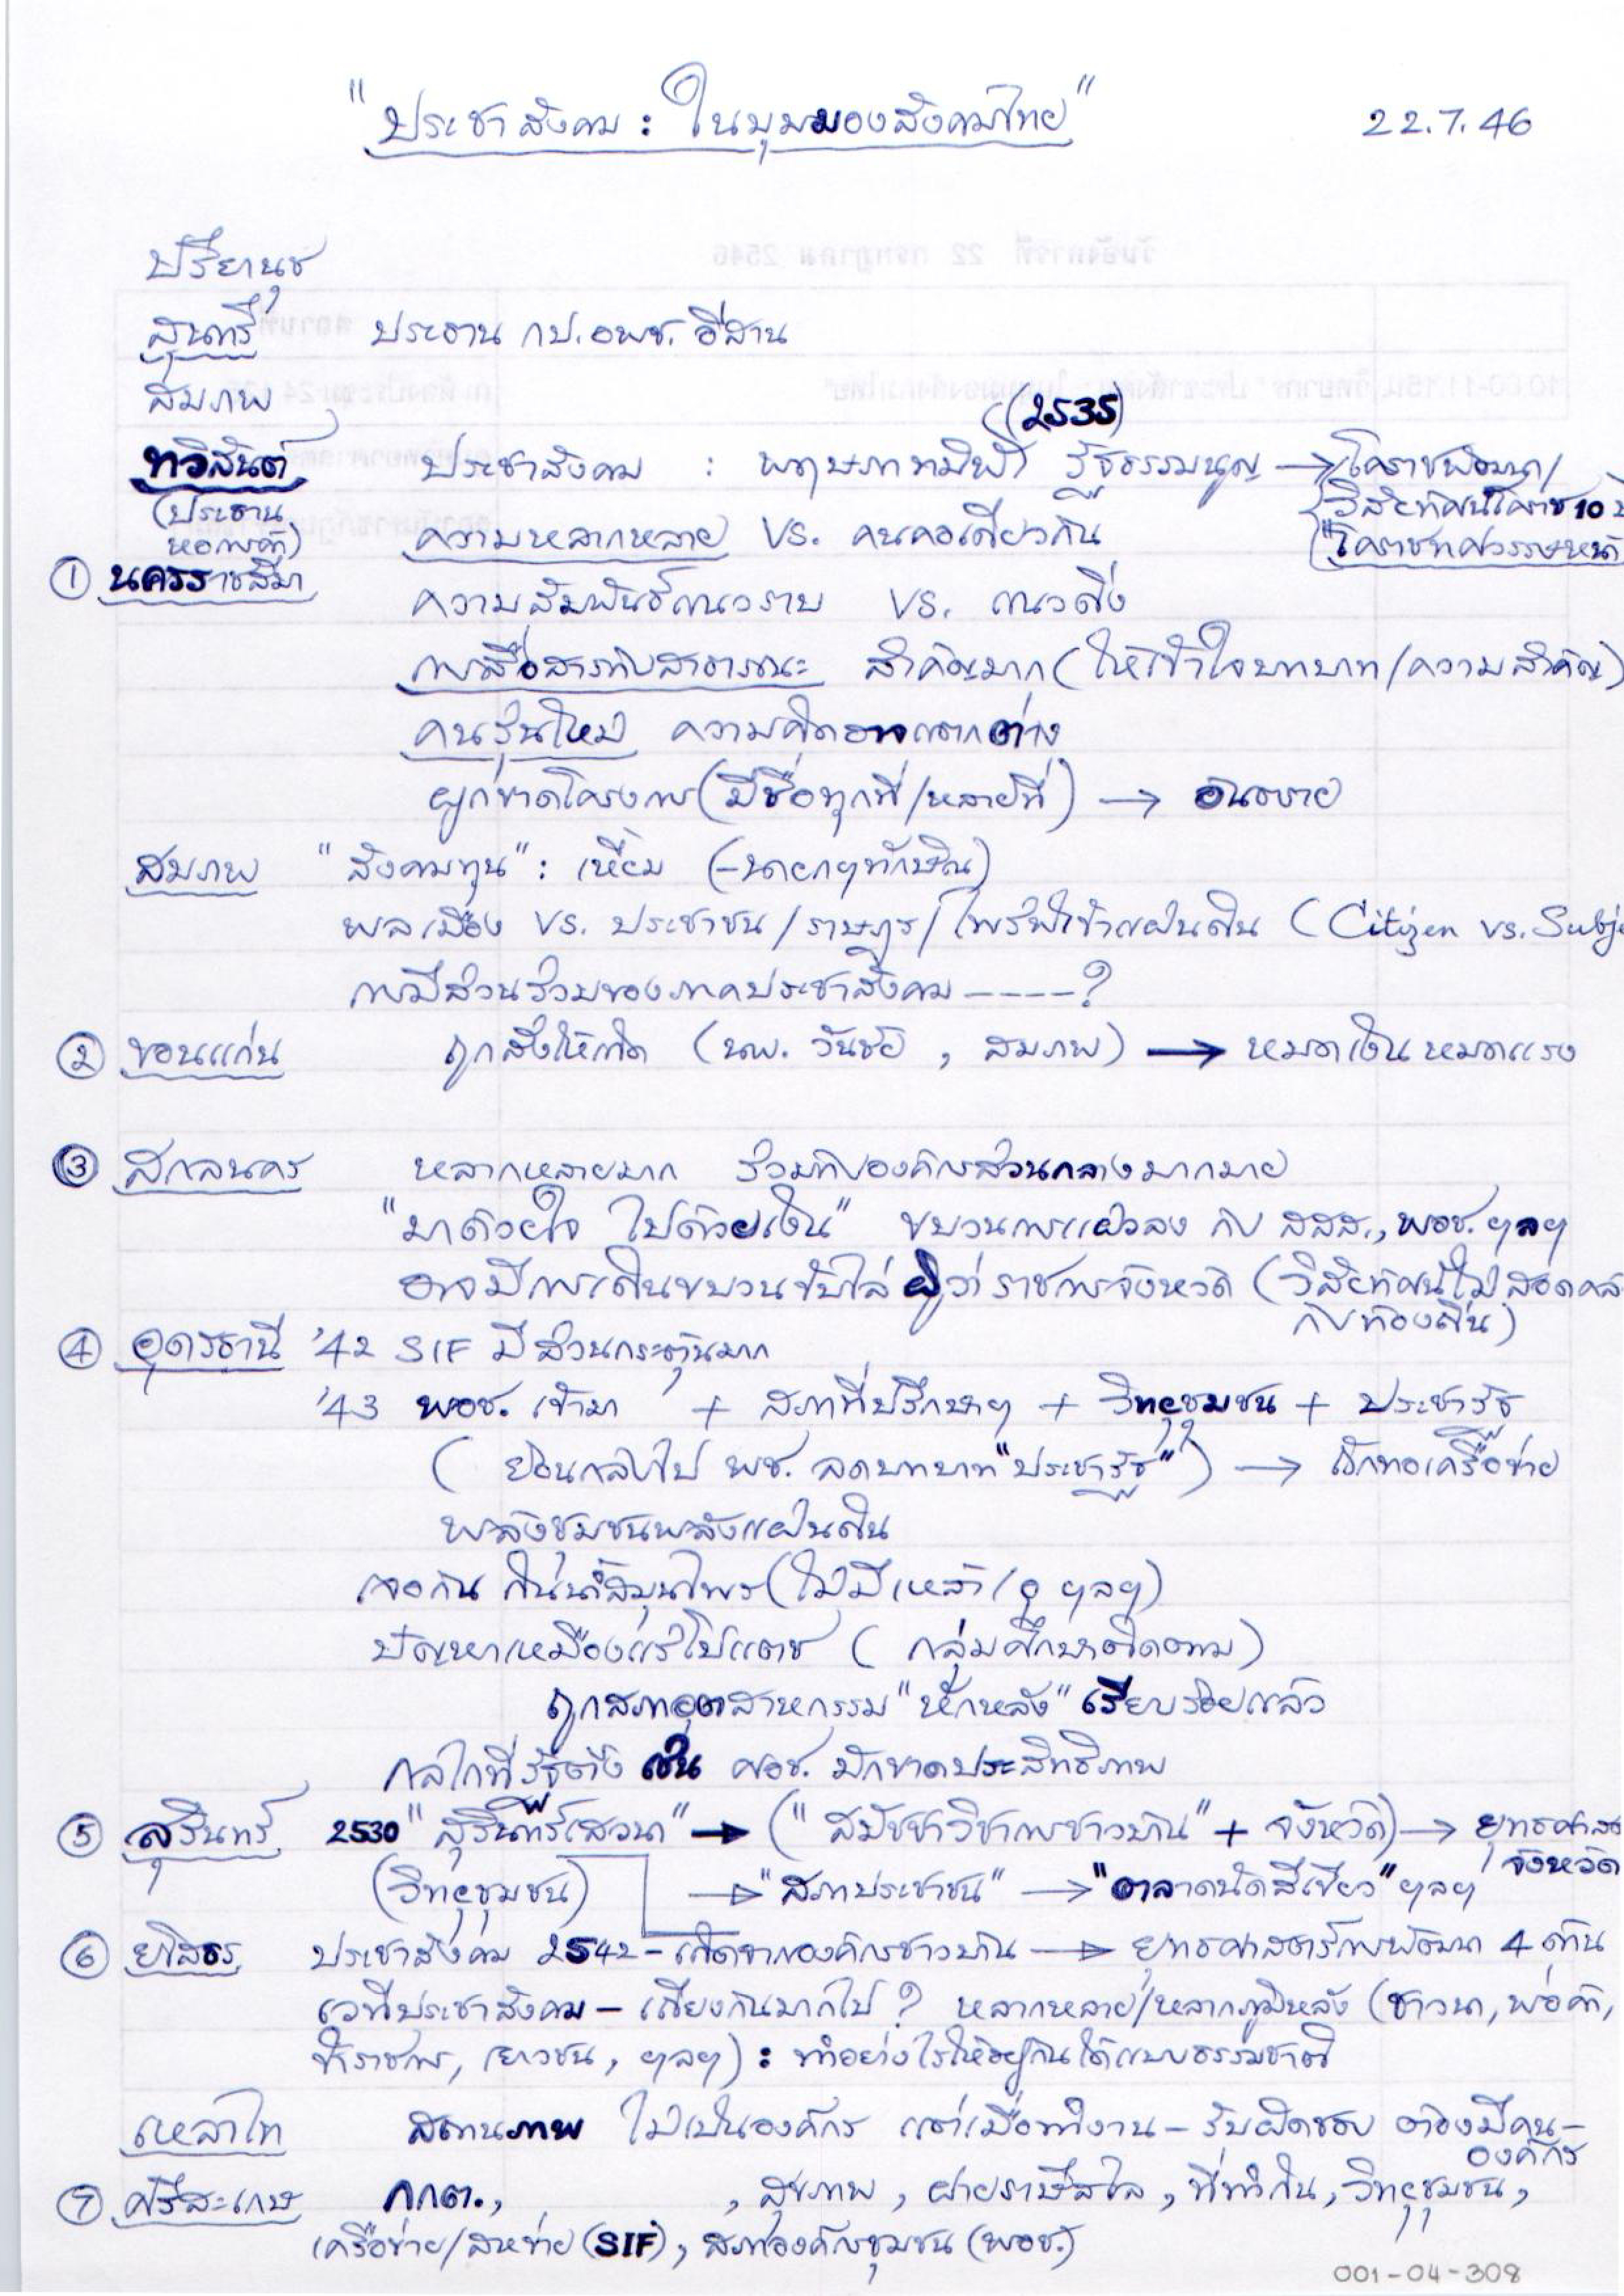 "ประชาสังคม : ในมุมมองสังคมไทย" 22.7.46
ปรียานุช
สุนทรี ประธาน กป.อพช. อีสาน
สมภพ
(2535)
ทวิสันต์ ประชาสังคม : พฤษภาทมิฬ รัฐธรรมนูญ → โคราชพัฒนา/
(ประธาน วิสัยทัศน์โคราช 10 ปี
หอการค้า) ความหลากหลาย VS. คนคอเดียวกัน "โคราชทศวรรษหน้า
① นครราชสีมา
ความสัมพันธ์แนวราบ VS. แนวดิ่ง
การสื่อสารกับสาธารณะ สำคัญมาก (ให้เข้าใจบทบาท/ความสำคัญ)
คนรุ่นใหม่ ความคิดอาจแตกต่าง
ผูกขาดโครงการ (มีชื่อทุกที่/หลายที่) → อันตราย
สมภพ "สังคมทุน" : เหี้ยม (-นายกฯทักษิณ)
พลเมือง VS. ประชาชน/ราษฎร/ไพร่ฟ้าข้าแผ่นดิน (Citizen vs. Subje
การมีส่วนร่วมของภาคประชาสังคม ----?
② ขอนแก่น ถูกสั่งให้เกิด (นพ. วันชัย , สมภพ) → หมดเงินหมดแรง
③ สกลนคร หลากหลายมาก ร่วมกับองค์กรส่วนกลางมากมาย
"มาด้วยใจ ไปด้วยเงิน" ขบวนการแผ่วลง กับ สสส., พอช. ฯลฯ
อาจมีการเดินขบวนขับไล่ ผู้ว่าราชการจังหวัด (วิสัยทัศน์ไม่สอดคล
กับท้องถิ่น)
④ อุดรธานี '42 SIF มีส่วนกระตุ้นมาก
'43 พอช. เข้ามา + สภาที่ปรึกษาฯ + วิทยุชุมชน + ประชารัฐ
(ย้อนกลับไป พช. ลดบทบาท "ประชารัฐ") → ถักทอเครือข่าย
พลังชุมชนพลังแผ่นดิน
เจอกัน กินน้ำสมุนไพร (ไม่มีเหล้า/ ฯลฯ)
ปัญหาเหมืองแร่โปแตช (กลุ่มศึกษาติดตาม)
ถูกสภาอุตสาหกรรม "หักหลัง" เรียบร้อยแล้ว
กลไกที่รัฐตั้ง เช่น ศอช. มักขาดประสิทธิภาพ
⑤ สุรินทร์ 2530 "สุรินทร์เสวนา" → ("สมัชชาวิชาการชาวบ้าน" + จังหวัด) → ยุทธศาสต
จังหวัด
(วิทยุชุมชน) → "สภาประชาชน" → "ตลาดนัดสีเขียว" ฯลฯ
⑥ ยโสธร ประชาสังคม 2542 - เกิดจากองค์กรชาวบ้าน → ยุทธศาสตร์การพัฒนา 4 ด้าน
เวทีประชาสังคม - เถียงกันมากไป ? หลากหลาย/หลากภูมิหลัง (ชาวนา, พ่อค้า,
ข้าราชการ, เยาวชน, ฯลฯ) : ทำอย่างไรให้อยู่กันได้แบบธรรมชาติ
เหล่าไท สถานภาพ ไม่เป็นองค์กร แต่เมื่อทำงาน - รับผิดชอบ ต้องมีคน-
องค์กร
⑦ ศรีสะเกษ กกต., , สุขภาพ, ฝายราษีไศล, ที่ทำกิน, วิทยุชุมชน,
เครือข่าย/สหข่าย (SIF), สภาองค์กรชุมชน (พอช.)
001-04-308